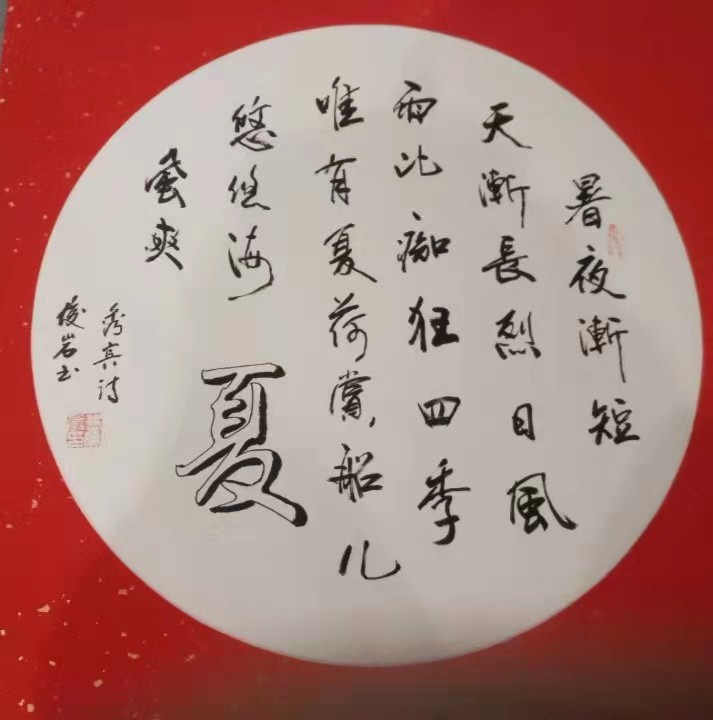 暑夜漸短
天漸長烈日風
雨比痴狂四季
唯有夏荷賞船儿
悠悠海
風爽
夏
秀真诗
俊岩书